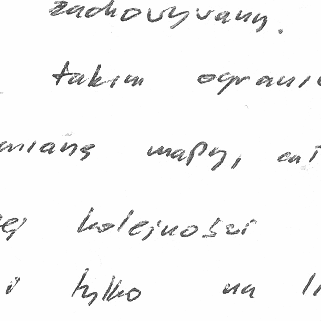 zachowywany.
takim ograni
mianę mapy,
ej kolejności
i tylko na li